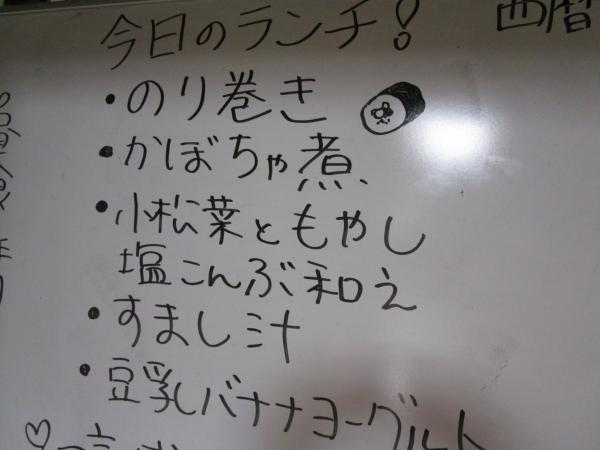 今日のランチ!
西暦
・のり巻き
・かぼちゃ煮
・小松菜ともやし
塩こんぶ和え
・すまし汁
・豆乳バナナヨーグルト